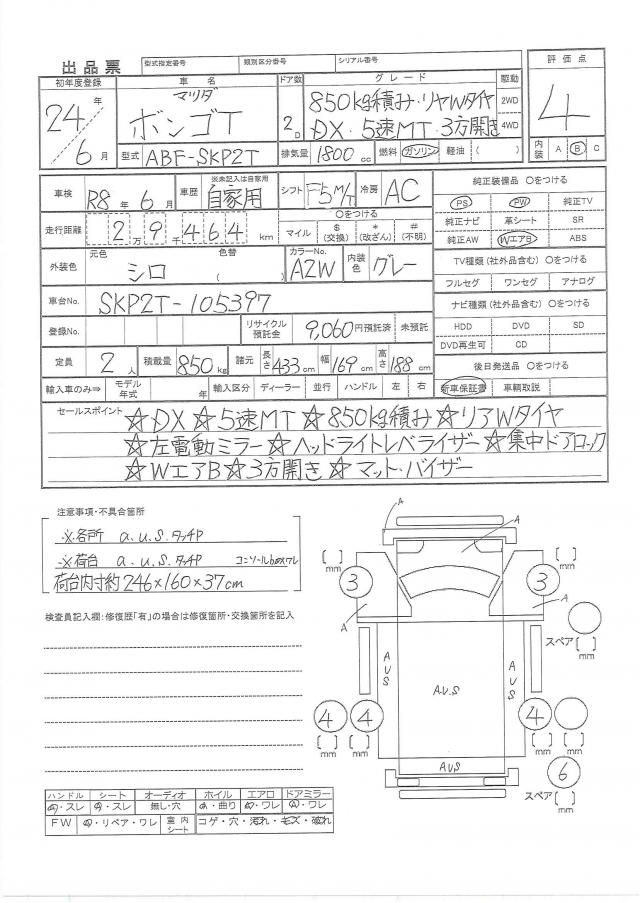 出品票
型式指定番号 類別区分番号 シリアル番号
初年度登録 車名 ドア数 グレード 駆動 評価点
24年 6月
マツダ
ボンゴT
2D
850kg積み・リヤWタイヤ 2WD
DX・5速MT・3方開き 4WD
4
型式 ABF-SKP2T 排気量 1800cc 燃料 ガソリン ・ 軽油 ・ ( ) 内装 A B C
車検 R8年 6月 車歴 ※未記入は自家用 自家用 シフト F5M/T 冷房 AC
純正装備品 〇をつける
PS PW 純正TV
純正ナビ 革シート SR
純正AW WエアB ABS
走行距離 2万9千464km
〇をつける
マイル $(交換) *(改ざん) #(不明)
外装色 元色 シロ 色替 ( ) カラーNo. A2W 内装色 グレー
TV種類(社外品含む) 〇をつける
フルセグ ワンセグ アナログ
車台No. SKP2T-105397
ナビ種類(社外品含む) 〇をつける
HDD DVD SD
DVD再生可 CD
登録No. リサイクル預託金 9,060円預託済 未預託
定員 2人 積載量 850kg 諸元 長さ433cm 幅169cm 高さ188cm
後日発送品 〇をつける
新車保証書 車輌取説
輸入車のみ⇒ モデル年式 年 輸入区分 ディーラー ・ 並行 ハンドル 左 ・ 右
セールスポイント ☆DX☆5速MT☆850kg積み☆リアWタイヤ
☆左電動ミラー☆ヘッドライトレベライザー☆集中ドアロック
☆WエアB☆3方開き☆マット・バイザー
注意事項・不具合箇所
※各所 a.u.s.タッチP
※荷台 a.u.s.タッチP コンソールboxワレ
荷台内寸約246×160×37cm
検査員記入欄:修復歴「有」の場合は修復箇所・交換箇所を記入
A A
[ ]mm 3 3 [ ]mm
A A
スペア[ ]mm
AUS A.U.S AUS
4 4 4
[ ]mm [ ]mm [ ]mm [ ]mm
AUS
6
スペア[ ]mm
ハンドル シート オーディオ ホイル エアロ ドアミラー
・スレ ・スレ 無し・穴 ・曲り ・ワレ ・ワレ
FW ・リペア・ワレ 室内シート コゲ・穴・汚れ・毛ズ・破れ